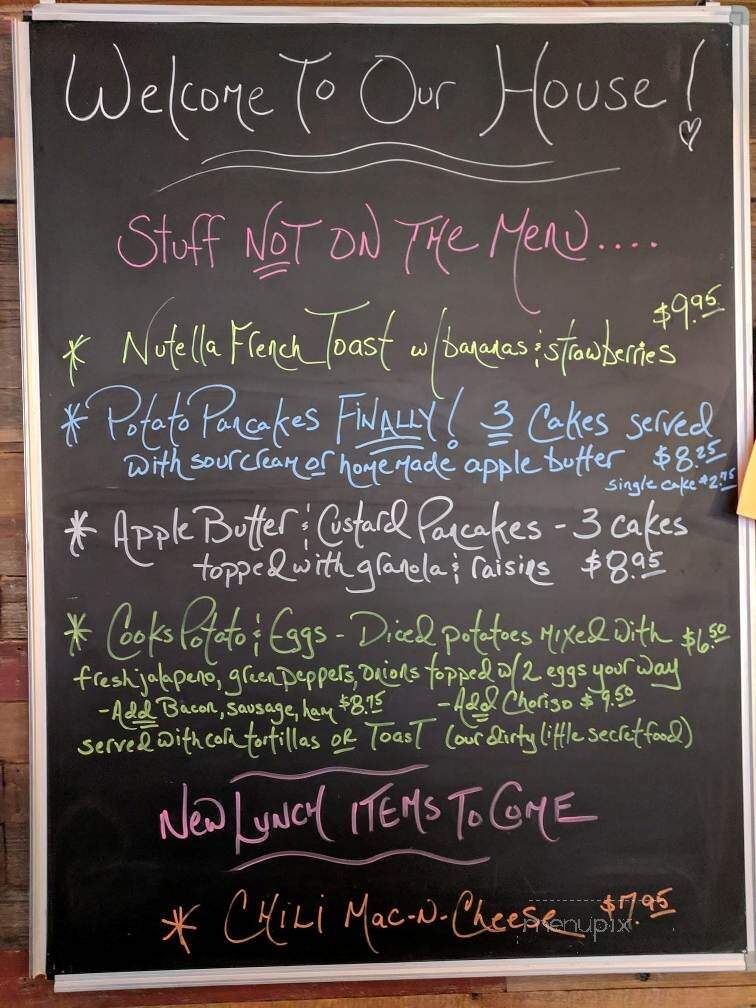 Welcome To Our House!
Stuff NOT ON THE MENU....
$9.95
* Nutella French Toast w/ bananas & strawberries
* Potato Pancakes FINALLY! 3 Cakes served
with sour cream or homemade apple butter $8.25
single cake $2.75
* Apple Butter & Custard Pancakes - 3 cakes
topped with granola & raisins $8.95
* Cooks Potato & Eggs - Diced potatoes mixed with $6.50
fresh jalapeno, green peppers, onions topped w/ 2 eggs your way
- Add Bacon, sausage, ham $8.75 - Add Choriso $9.50
served with corn tortillas OR TOAST (our dirty little secret food)
New Lunch ITEMS TO COME
* CHILI Mac-N-Cheese $7.95
menupix